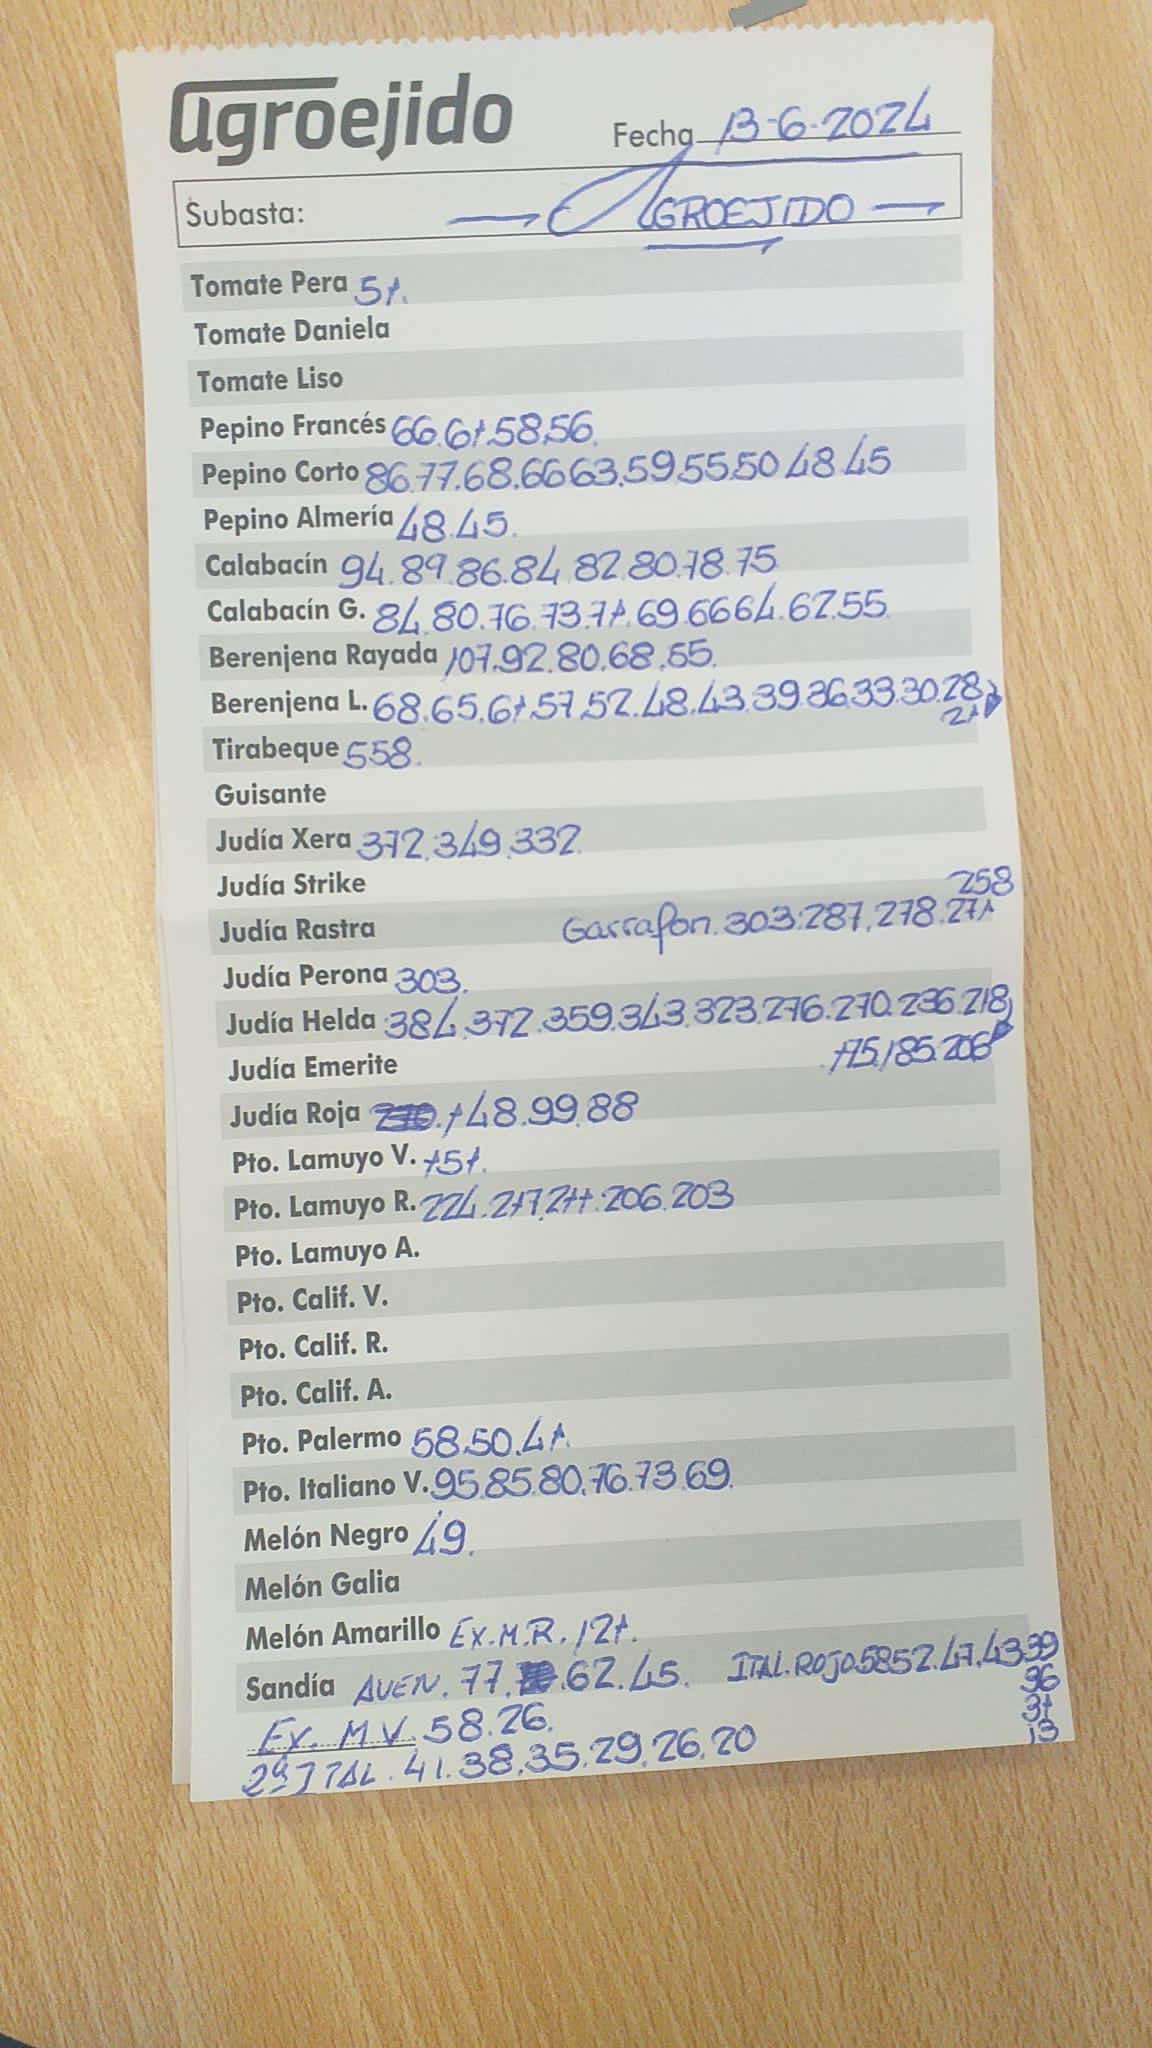 agroejido
Fecha 13-6-2024
Subasta: → AGROEJIDO →
Tomate Pera 51.
Tomate Daniela
Tomate Liso
Pepino Francés 66.61.58.56.
Pepino Corto 86.77.68.66.63.59.55.50.48.45
Pepino Almería 48.45.
Calabacín 94.89.86.84.82.80.78.75
Calabacín G. 84.80.76.73.71.69.66.64.62.55
Berenjena Rayada 107.92.80.68.55.
Berenjena L. 68.65.61.57.52.48.43.39.36.33.30.28
21
Tirabeque 558.
Guisante
Judía Xera 372.349.332
Judía Strike
258
Judía Rastra Garrafon. 303.287.278.271
Judía Perona 303.
Judía Helda 384.372.359.343.323.276.270.236.218
Judía Emerite 175.185.206
Judía Roja 148.99.88
Pto. Lamuyo V. 151.
Pto. Lamuyo R. 224.217.211.206.203
Pto. Lamuyo A.
Pto. Calif. V.
Pto. Calif. R.
Pto. Calif. A.
Pto. Palermo 58.50.41.
Pto. Italiano V. 95.85.80.76.73.69.
Melón Negro 49.
Melón Galia
Melón Amarillo EX.M.R. 121.
Sandía AVEN. 77. 62.45. ITAL.ROJO.58.52.47.43.39
36
31
13
EX. M.V. 58.26.
2ª ITAL. 41.38.35.29.26.20